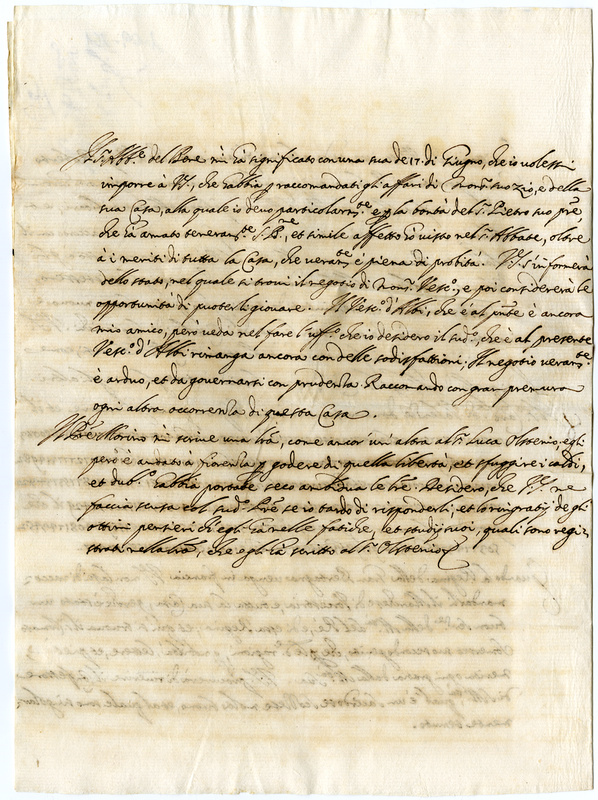 Il S.r Abb.e del Bene mi hà significato con una sua de 17. di Giugno, che io volessi
imporre à V.S., che habbia p raccomandati gli affari di Mons.r suo zio, e della
sua Casa, alla quale io devo particolarm.te e p la bontà del S. Pietro suo pre,
che hà amato teneram.te S. B.ne, et simile affetto hò visto nel S. Abbate, oltre
à i meriti di tutta la Casa, che veram.te è piena di probità. V.S. s'informerà
dello stato, nel quale si trovi il negotio di Mons.r Vesc.o, e poi considererà le
opportunità di poterli giovare. Il Vesc.o d'Albi, che è al pnte è ancora
mio amico, però veda nel fare l'uff.o che io desidero il sud.o, che è al presente
Vesc.o d'Albi rimanga ancora con delle sodisfattioni. Il negotio veram.te
è arduo, et da governarsi con prudenza. Raccomando con gran premura
ogni altra occorrenza di questa Casa.
Il P.re Morino mi scrive una lra, come ancor un'altra al S. Luca Olstenio, egli
però è andato à fiorenza p godere di quella libertà, et sfuggire i caldi,
et dub.o habbia portate seco le lre. Desidero, che V.S. ne
faccia scusa col sud.o Pre se io tardo di risponderli, et lo ringratij de gli
ottimi pensieri ch'egli hà nelle fatiche, et studij suoi, quali sono regi=
strati nella lra, che egli hà scritto al S. Olstenio